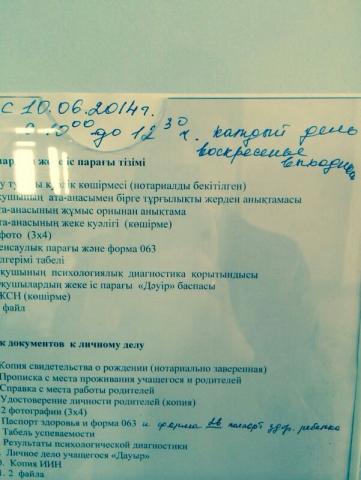 с 10.06.2014г.
с 10⁰⁰ до 12³⁰ ч. каждый день
воскресенье
выходной
жеке іс парағы тізімі
у туралы куәлік көшірмесі (нотариалды бекітілген)
қушының ата-анасымен бірге тұрғылықты жерден анықтамасы
та-анасының жұмыс орнынан анықтама
та-анасының жеке куәлігі (көшірме)
фото (3х4)
енсаулық парағы және форма 063
лгерімі табелі
қушының психологиялық диагностика қорытындысы
қушылардың жеке іс парағы «Дәуір» баспасы
ЖСН (көшірме)
файл
к документов к личному делу
Копия свидетельства о рождении (нотариально заверенная)
Прописка с места проживания учащегося и родителей
Справка с места работы родителей
Удостоверение личности родителей (копия)
2 фотографии (3х4)
Паспорт здоровья и форма 063 и форма паспорт здор. ребенка
Табель успеваемости
Результаты психологической диагностики
. Личное дело учащегося «Дауыр»
0. Копия ИИН
1. 2 файла